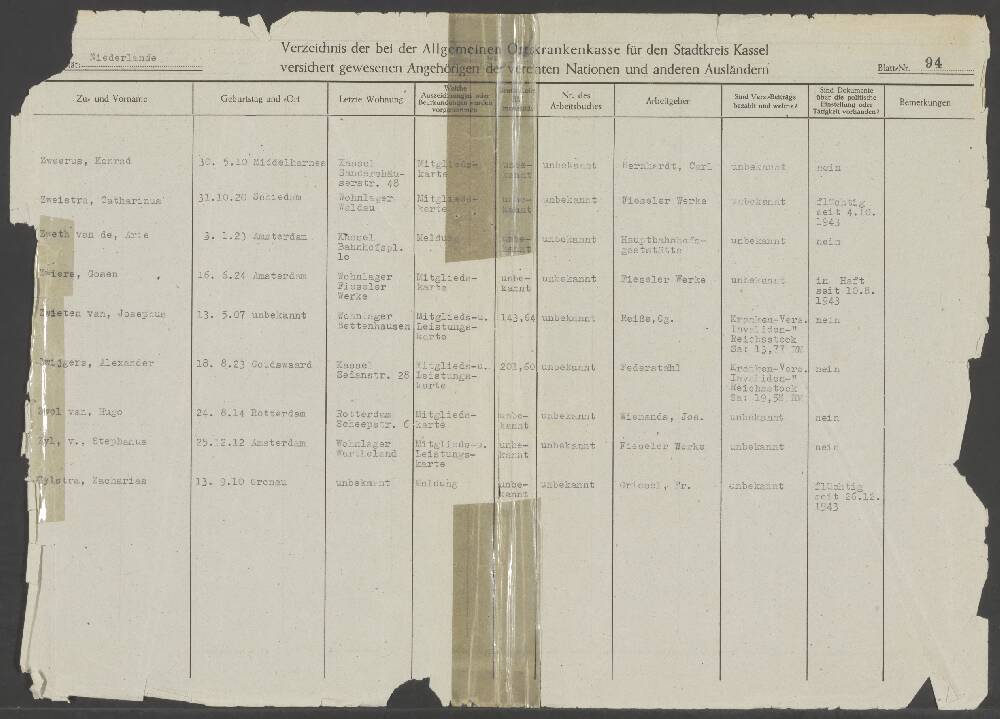 Niederlande
Verzeichnis der bei der Allgemeinen Ortskrankenkasse für den Stadtkreis Kassel
versichert gewesenen Angehörigen der vereinten Nationen und anderen Ausländern
Blatt-Nr. 94
Zu- und Vorname
Geburtstag und -Ort
Letzte Wohnung
Welche Aufzeichnungen oder Beurkundungen wurden vorgenommen
Nr. des Arbeitsbuches
Arbeitgeber
Sind Vers.-Beiträge bezahlt und welche?
Sind Dokumente über die politische Einstellung oder Tätigkeit vorhanden?
Bemerkungen
Zweerus, Konrad 30. 5.10 Middelharnes Kassel Mitglieds- unbe- unbekannt Bernhardt, Carl unbekannt nein
Sandershäu- karte kannt
serstr. 48
Zweistra, Catharinus 31.10.20 Schiedam Wohnlager Mitglieds- unbe- unbekannt Fieseler Werke unbekannt flüchtig
Waldau karte kannt seit 4.10.
1943
Zweth van de, Arie 3. 1.23 Amsterdam Kassel Meldung unbe- unbekannt Hauptbahnhofs- unbekannt nein
Bahnhofspl. kannt gaststätte
10
Zwiers, Gosen 16. 6.24 Amsterdam Wohnlager Mitglieds- unbe- unbekannt Fieseler Werke unbekannt in Haft
Fieseler karte kannt seit 10.8.
Werke 1943
Zwieten van, Josephus 13. 5.07 unbekannt Wohnlager Mitglieds-u. 143,64 unbekannt Reiße,Gg. Kranken-Vers. nein
Bettenhausen Leistungs- Invaliden-"
karte Reichsstock
Sa: 13,77 RM
Zwidgers, Alexander 18. 8.23 Goudswaard Kassel Mitglieds-u. 201,60 unbekannt Federstahl Kranken-Vers. nein
Sedanstr. 28 Leistungs- Invaliden-"
karte Reichsstock
Sa: 19,58 RM
Zwol van, Hugo 24. 8.14 Rotterdam Rotterdam Mitglieds- unbe- unbekannt Wiemands, Jos. unbekannt nein
Scheepstr. 6 karte kannt
Zyl, v., Stephanus 25.12.12 Amsterdam Wohnlager Mitglieds-u. unbe- unbekannt Fieseler Werke unbekannt nein
Wartheland Leistungs- kannt
karte
Zylstra, Zacharias 13. 9.10 Gronau unbekannt Meldung unbe- unbekannt Griesel, Fr. unbekannt flüchtig
kannt seit 26.12.
1943